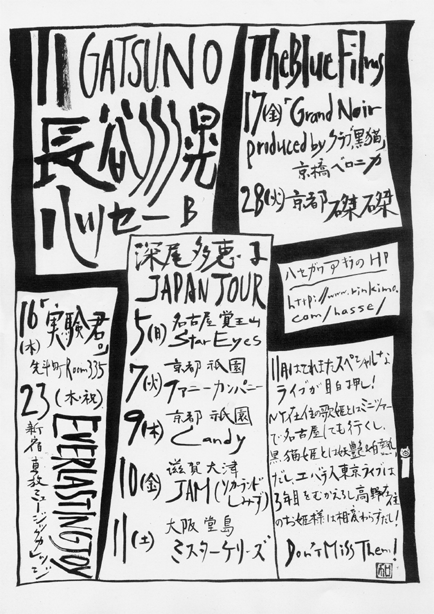 11 GATSUNO
長谷川晃
ハッセー B
The Blue Films
17(金)「Grand Noir
produced by クラブ黒猫」
京橋ベロニカ
28(火)京都 磔磔
ハセガワアキラのHP
http://www.rinkimo.
com/hasse/
深尾多恵子
JAPAN TOUR
5(日)名古屋 覚王山
Star Eyes
7(火)京都 祇園
ファニーカンパニー
9(木)京都 祇園
Candy
10(金)滋賀 大津
JAM
11(土)大阪 堂島
ミスターケリーズ
16「実験君」
(木)先斗町 Room335
23(木・祝)
EVERLASTING JOY
新宿
ミュージックカレッジ
11月はてんこスペシャルな
ライブが目白押し!
NY在住の歌姫とはミニツアー
で名古屋にも行くし、
黒猫姫とは妖艶
だし、エバラス東京ライブは
3年目をむかえるし高野
のお姫様は相変わらずだし!
Don't Miss Them!